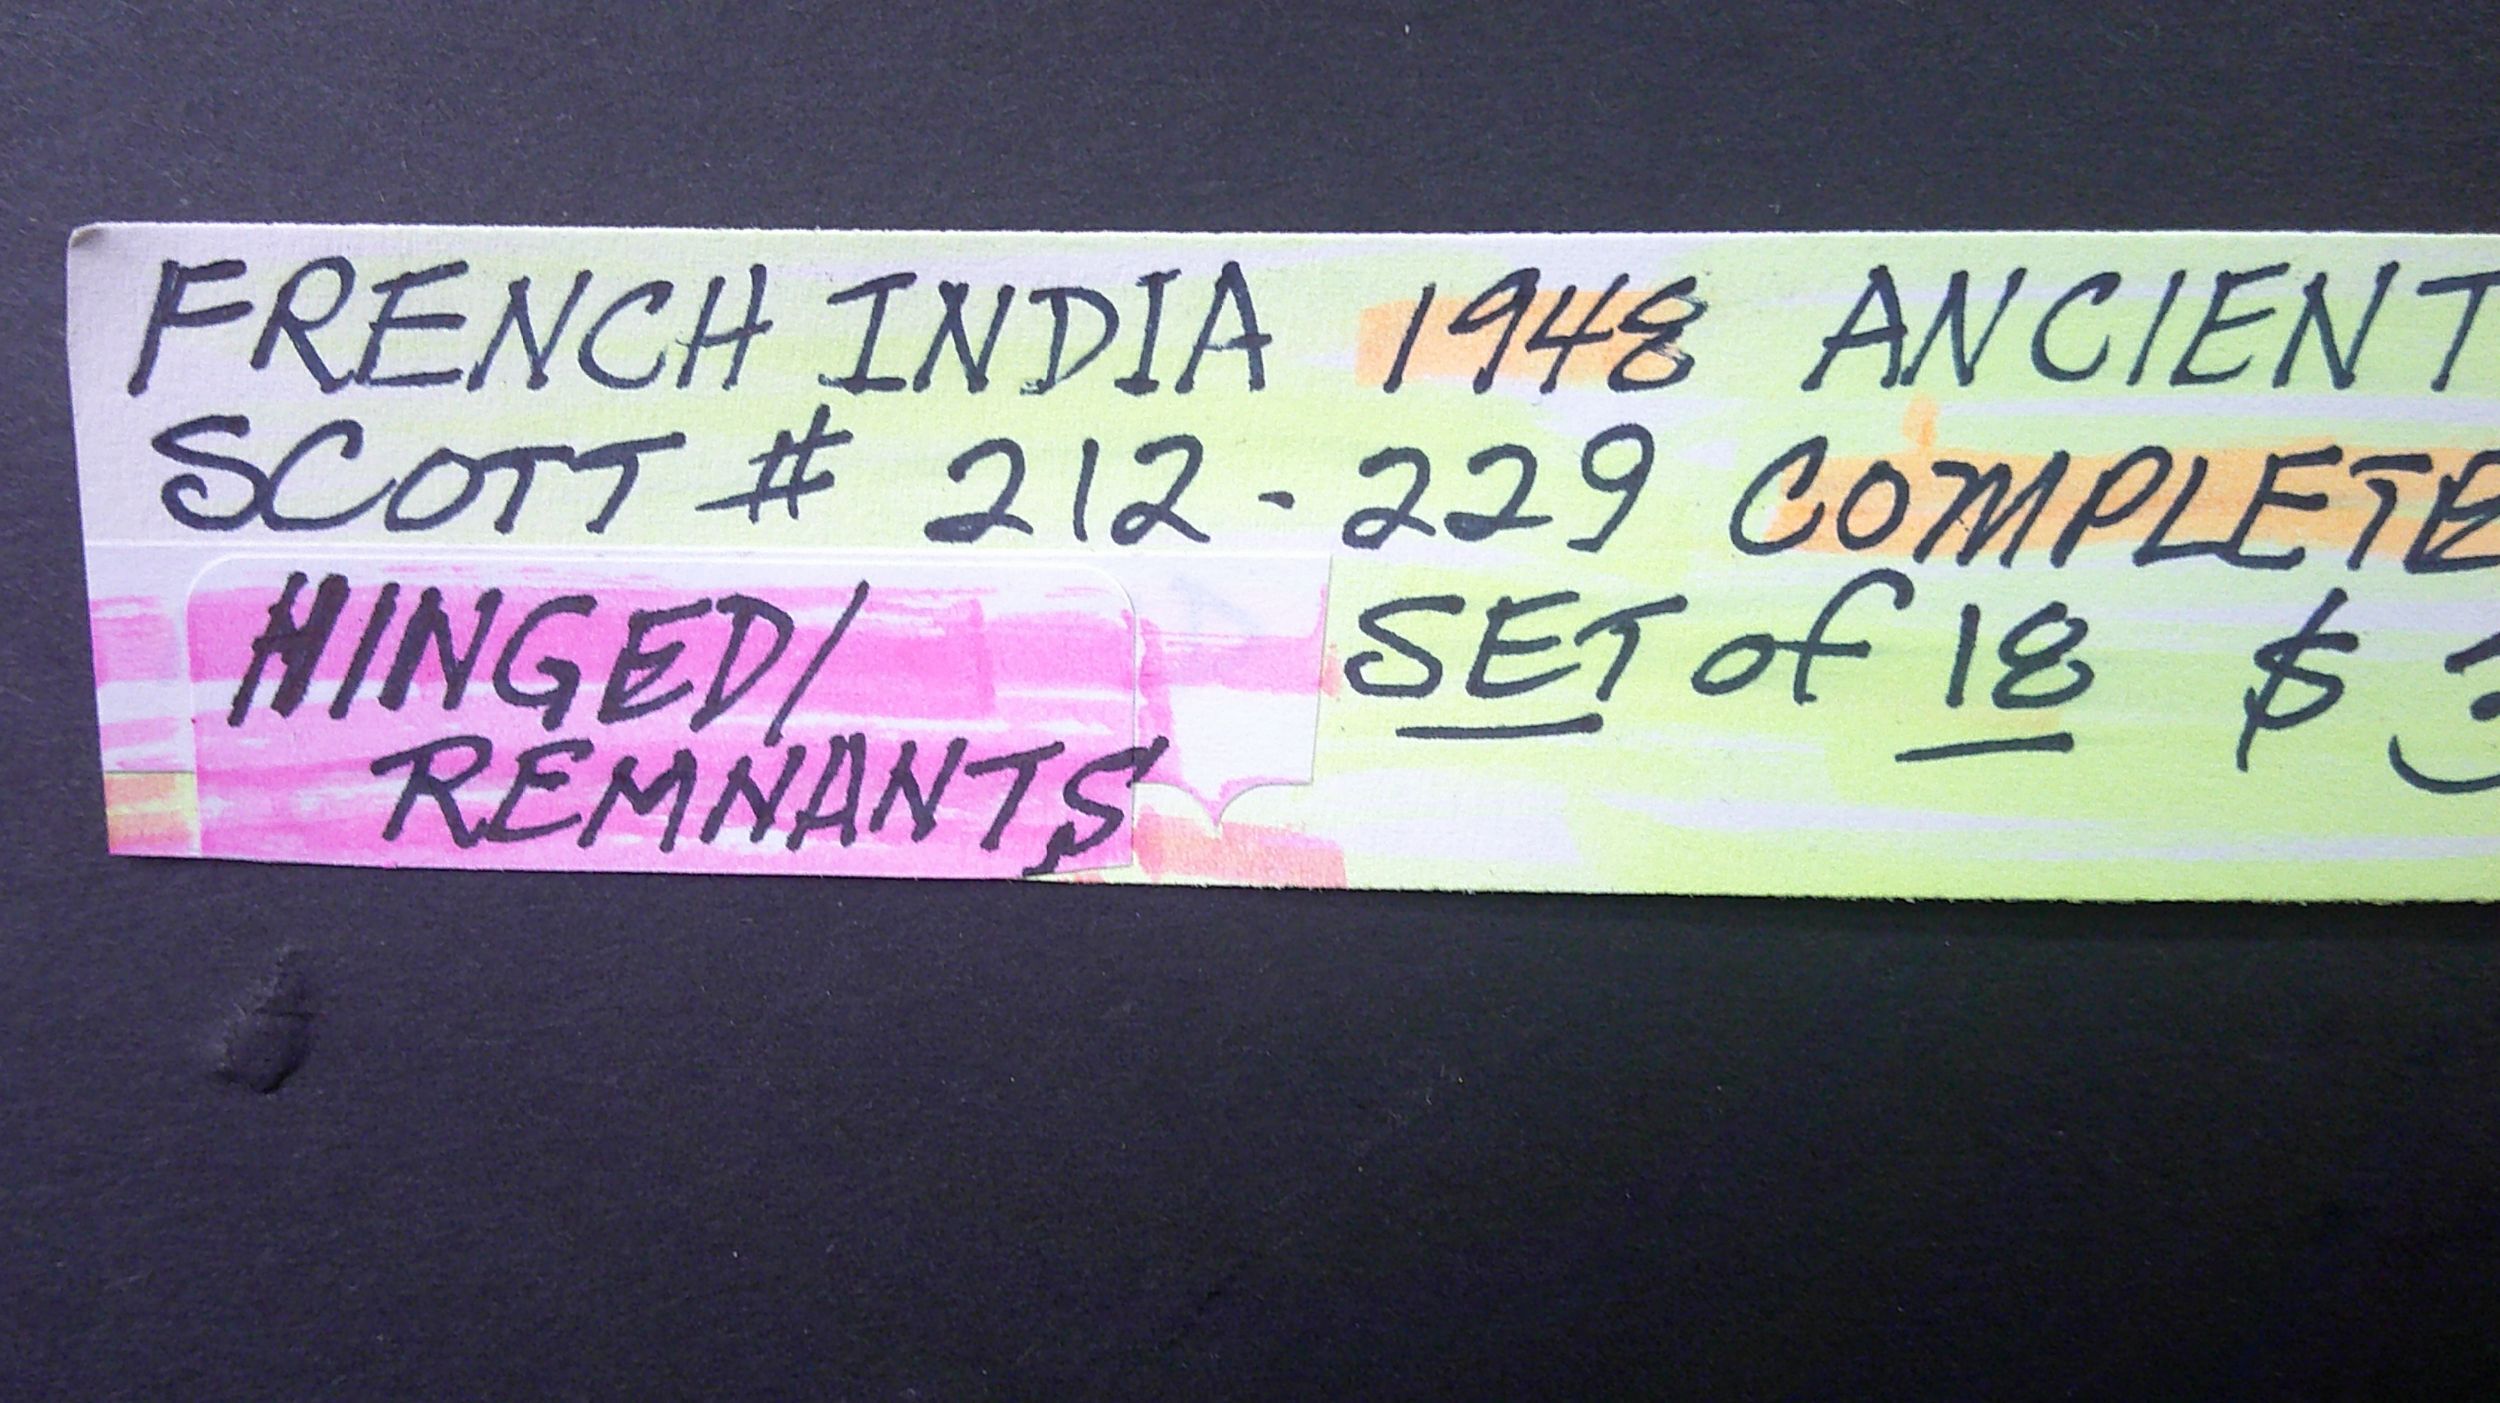 FRENCH INDIA 1948 ANCIENT
SCOTT # 212 - 229 COMPLETE
HINGED/ SET of 18 $ 3
REMNANTS